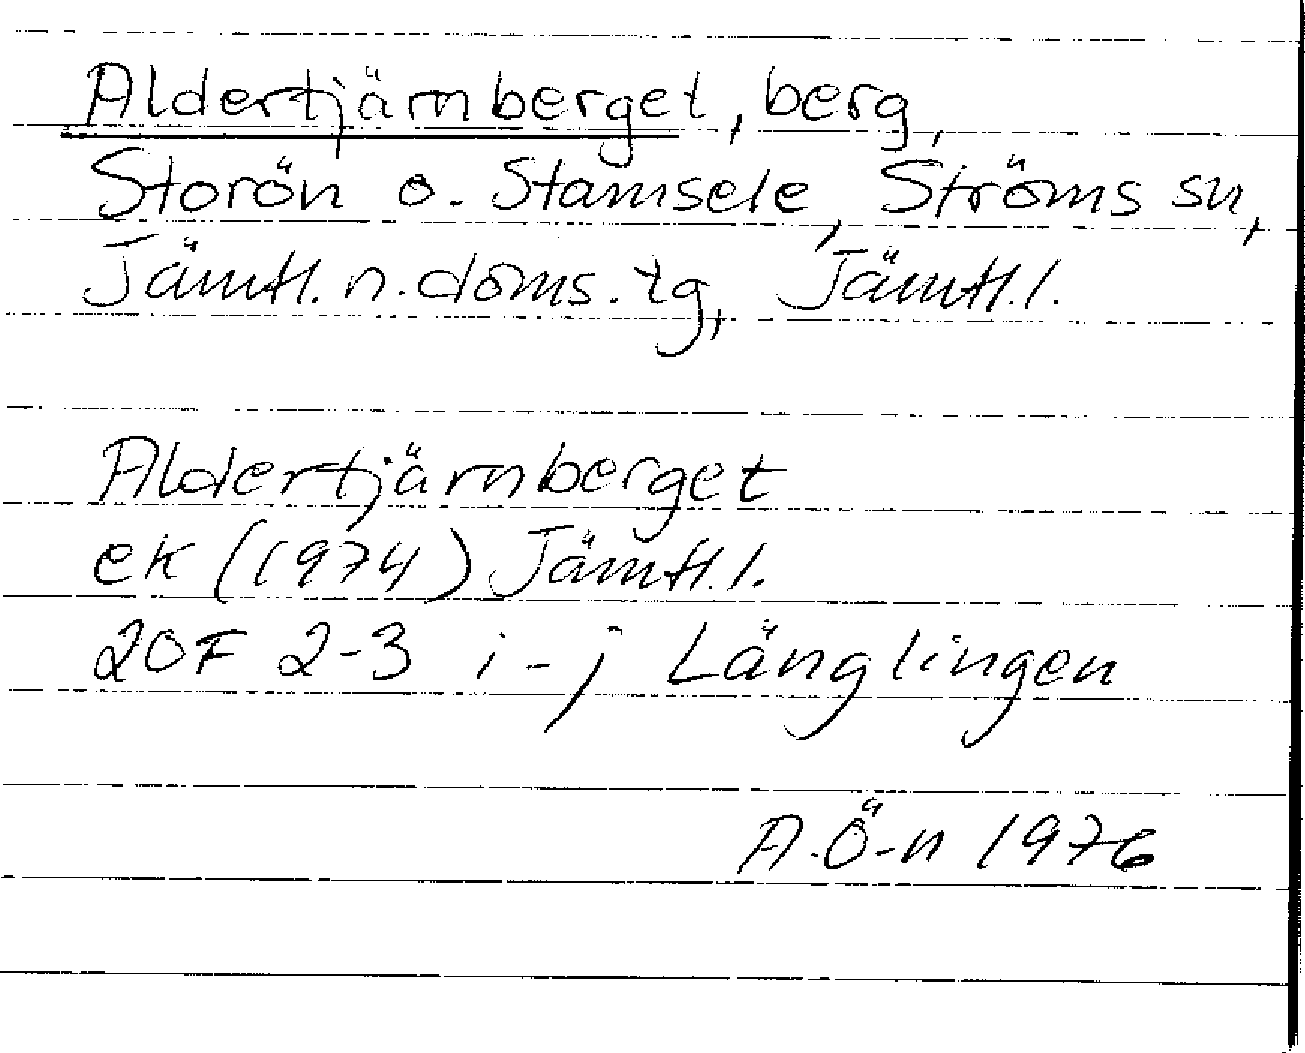 Aldertjärnberget, berg,
Storön o. Stamsele, Ströms sn,
Jämtl. n. doms. tg, Jämtl. l.
Aldertjärnberget
ek (1974) Jämtl. l.
20F 2-3 i-j Länglingen
A.Ö-n 1976